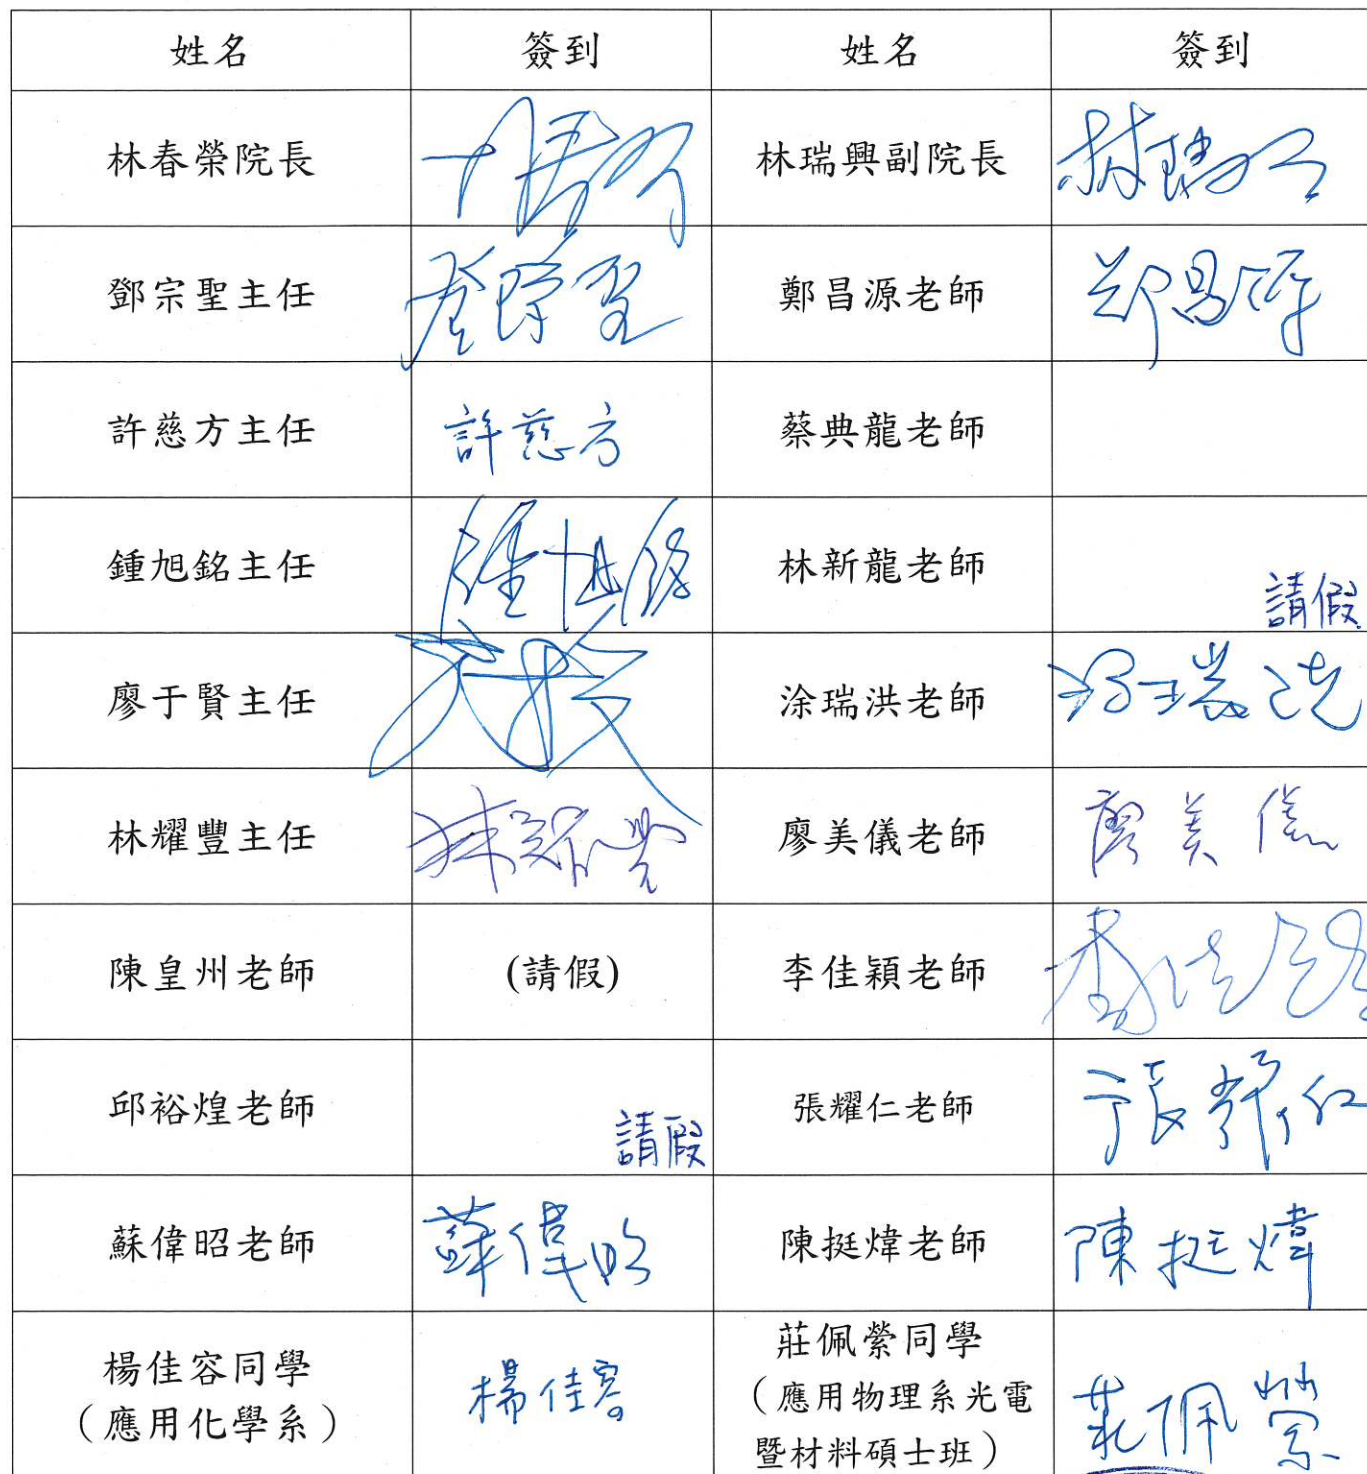 姓名 簽到 姓名 簽到
林春榮院長 林瑞興副院長 林瑞
鄧宗聖主任 鄭昌源老師 鄭昌源
許慈方主任 許慈方 蔡典龍老師
鍾旭銘主任 鍾旭銘 林新龍老師 請假
廖于賢主任 涂瑞洪老師 涂瑞洪
林耀豐主任 林耀豐 廖美儀老師 廖美儀
陳皇州老師 (請假) 李佳穎老師 李佳穎
邱裕煌老師 請假 張耀仁老師 張耀仁
蘇偉昭老師 蘇偉昭 陳挺煒老師 陳挺煒
楊佳容同學 楊佳容 莊佩縈同學 莊佩縈
(應用化學系) (應用物理系光電
暨材料碩士班)